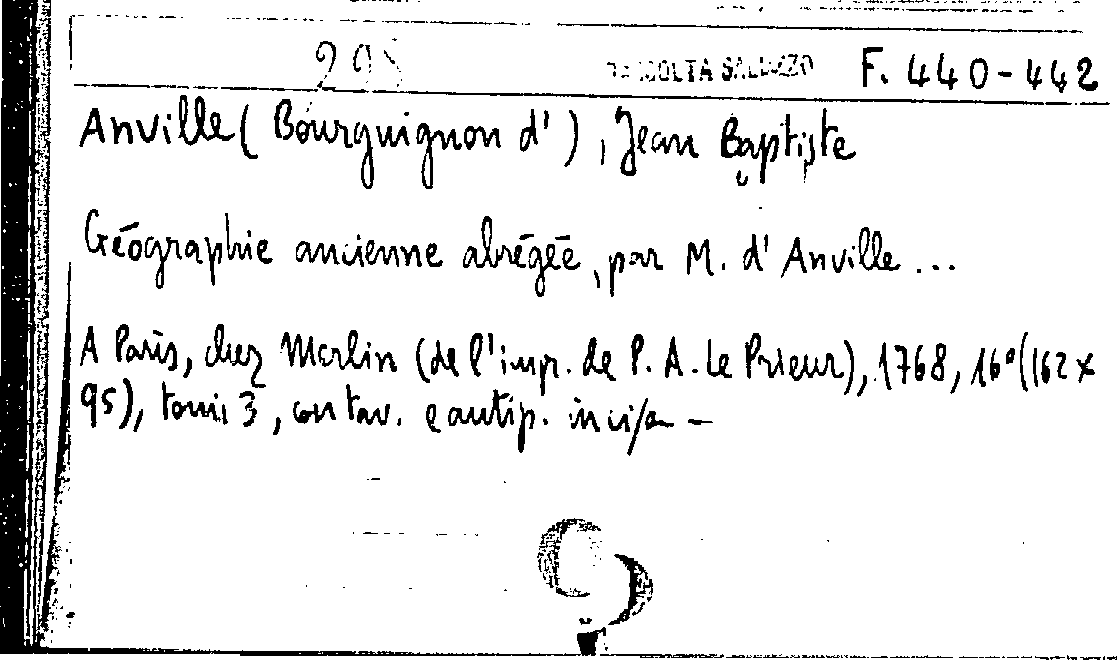 295 RACCOLTA SALUZZO F. 440-442
Anville (Bourguignon d'), Jean Baptiste
Géographie ancienne abrégée, par M. d'Anville...
A Paris, chez Merlin (de l'imp. de P. A. Le Prieur), 1768, 16° (162x
95), tomi 3, con tav. e antip. incisa –